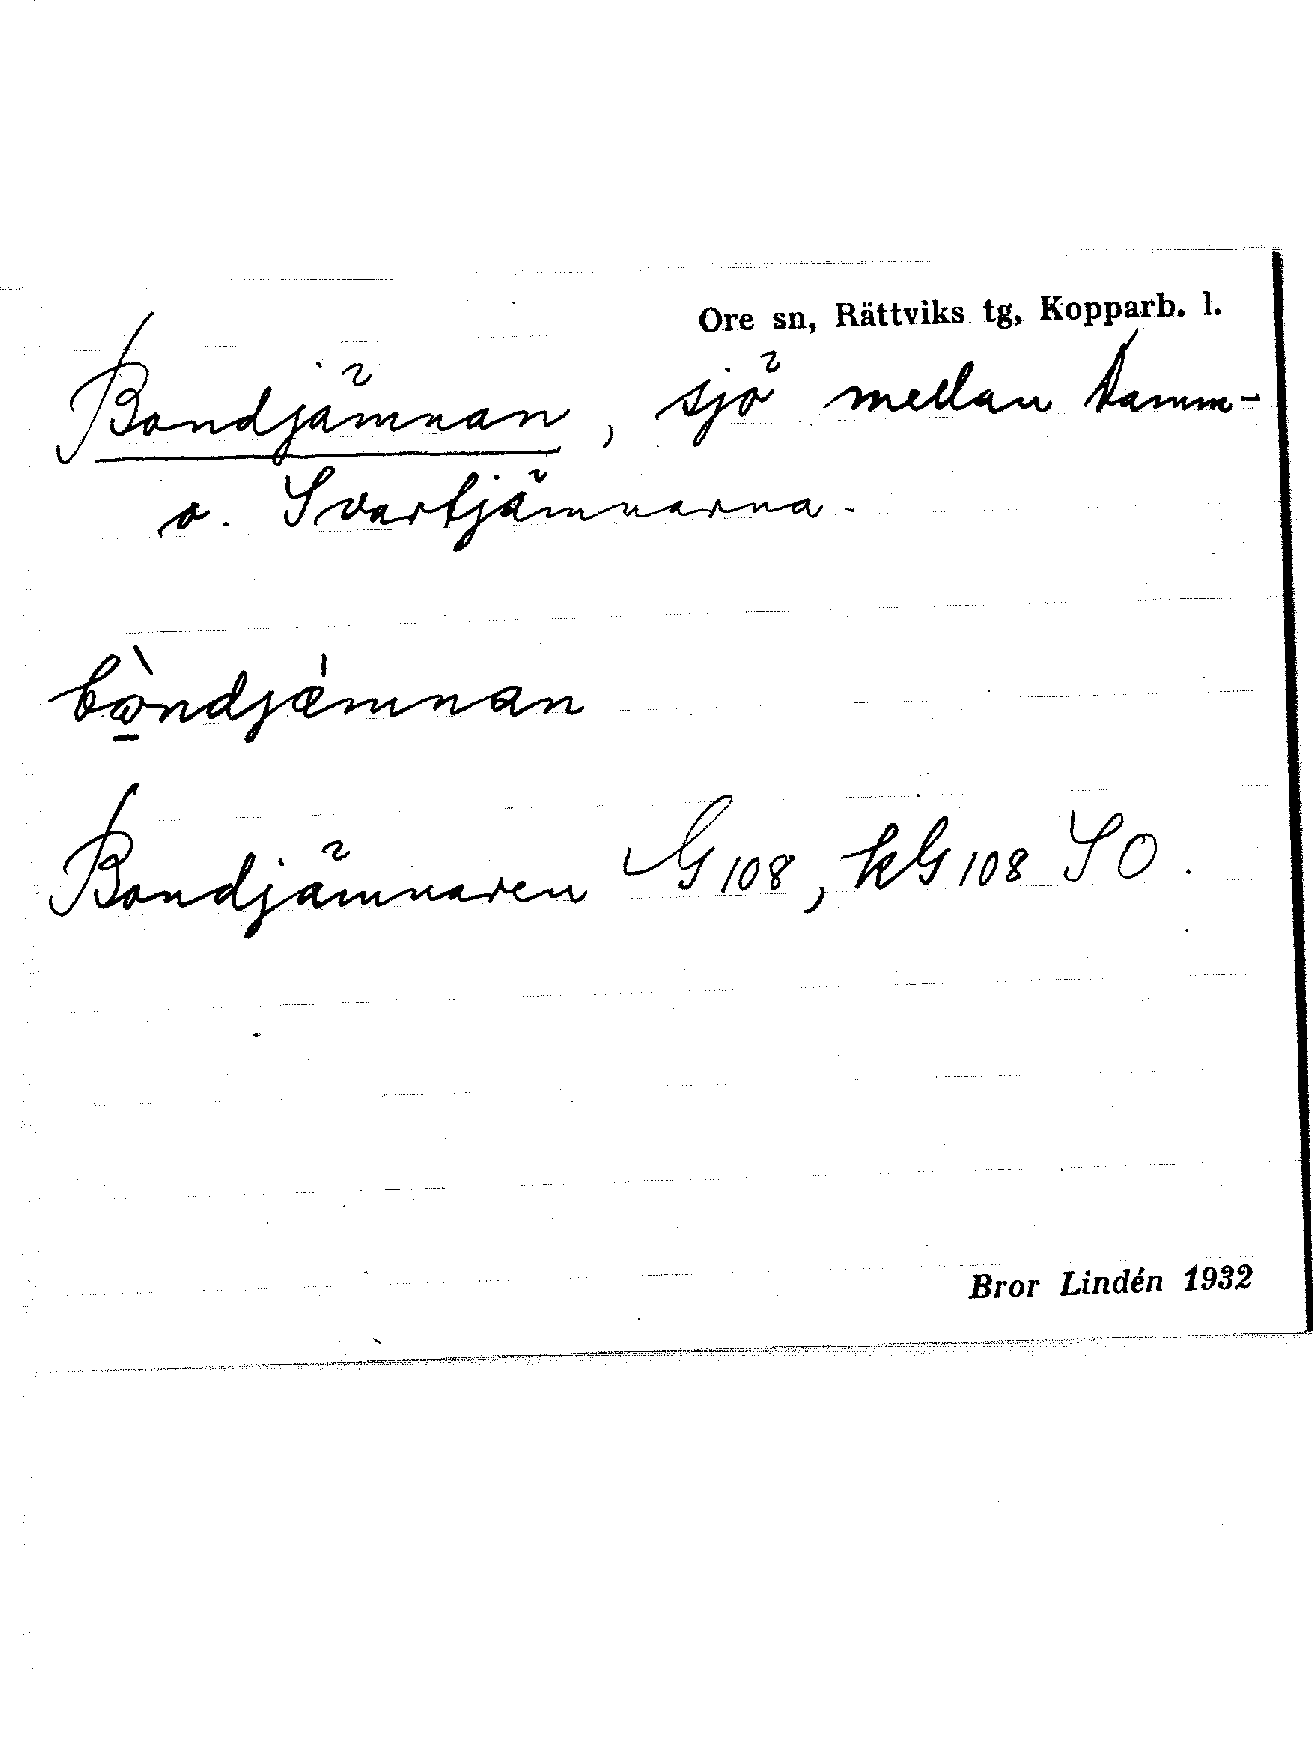 Ore sn, Rättviks tg, Kopparb. l.
Bondjämnan, sjö mellan Damm-
o. Svartjämnarna.
bòndjǽmnan
Bondjämnaren G 108, kG 108 SO.
Bror Lindén 1932